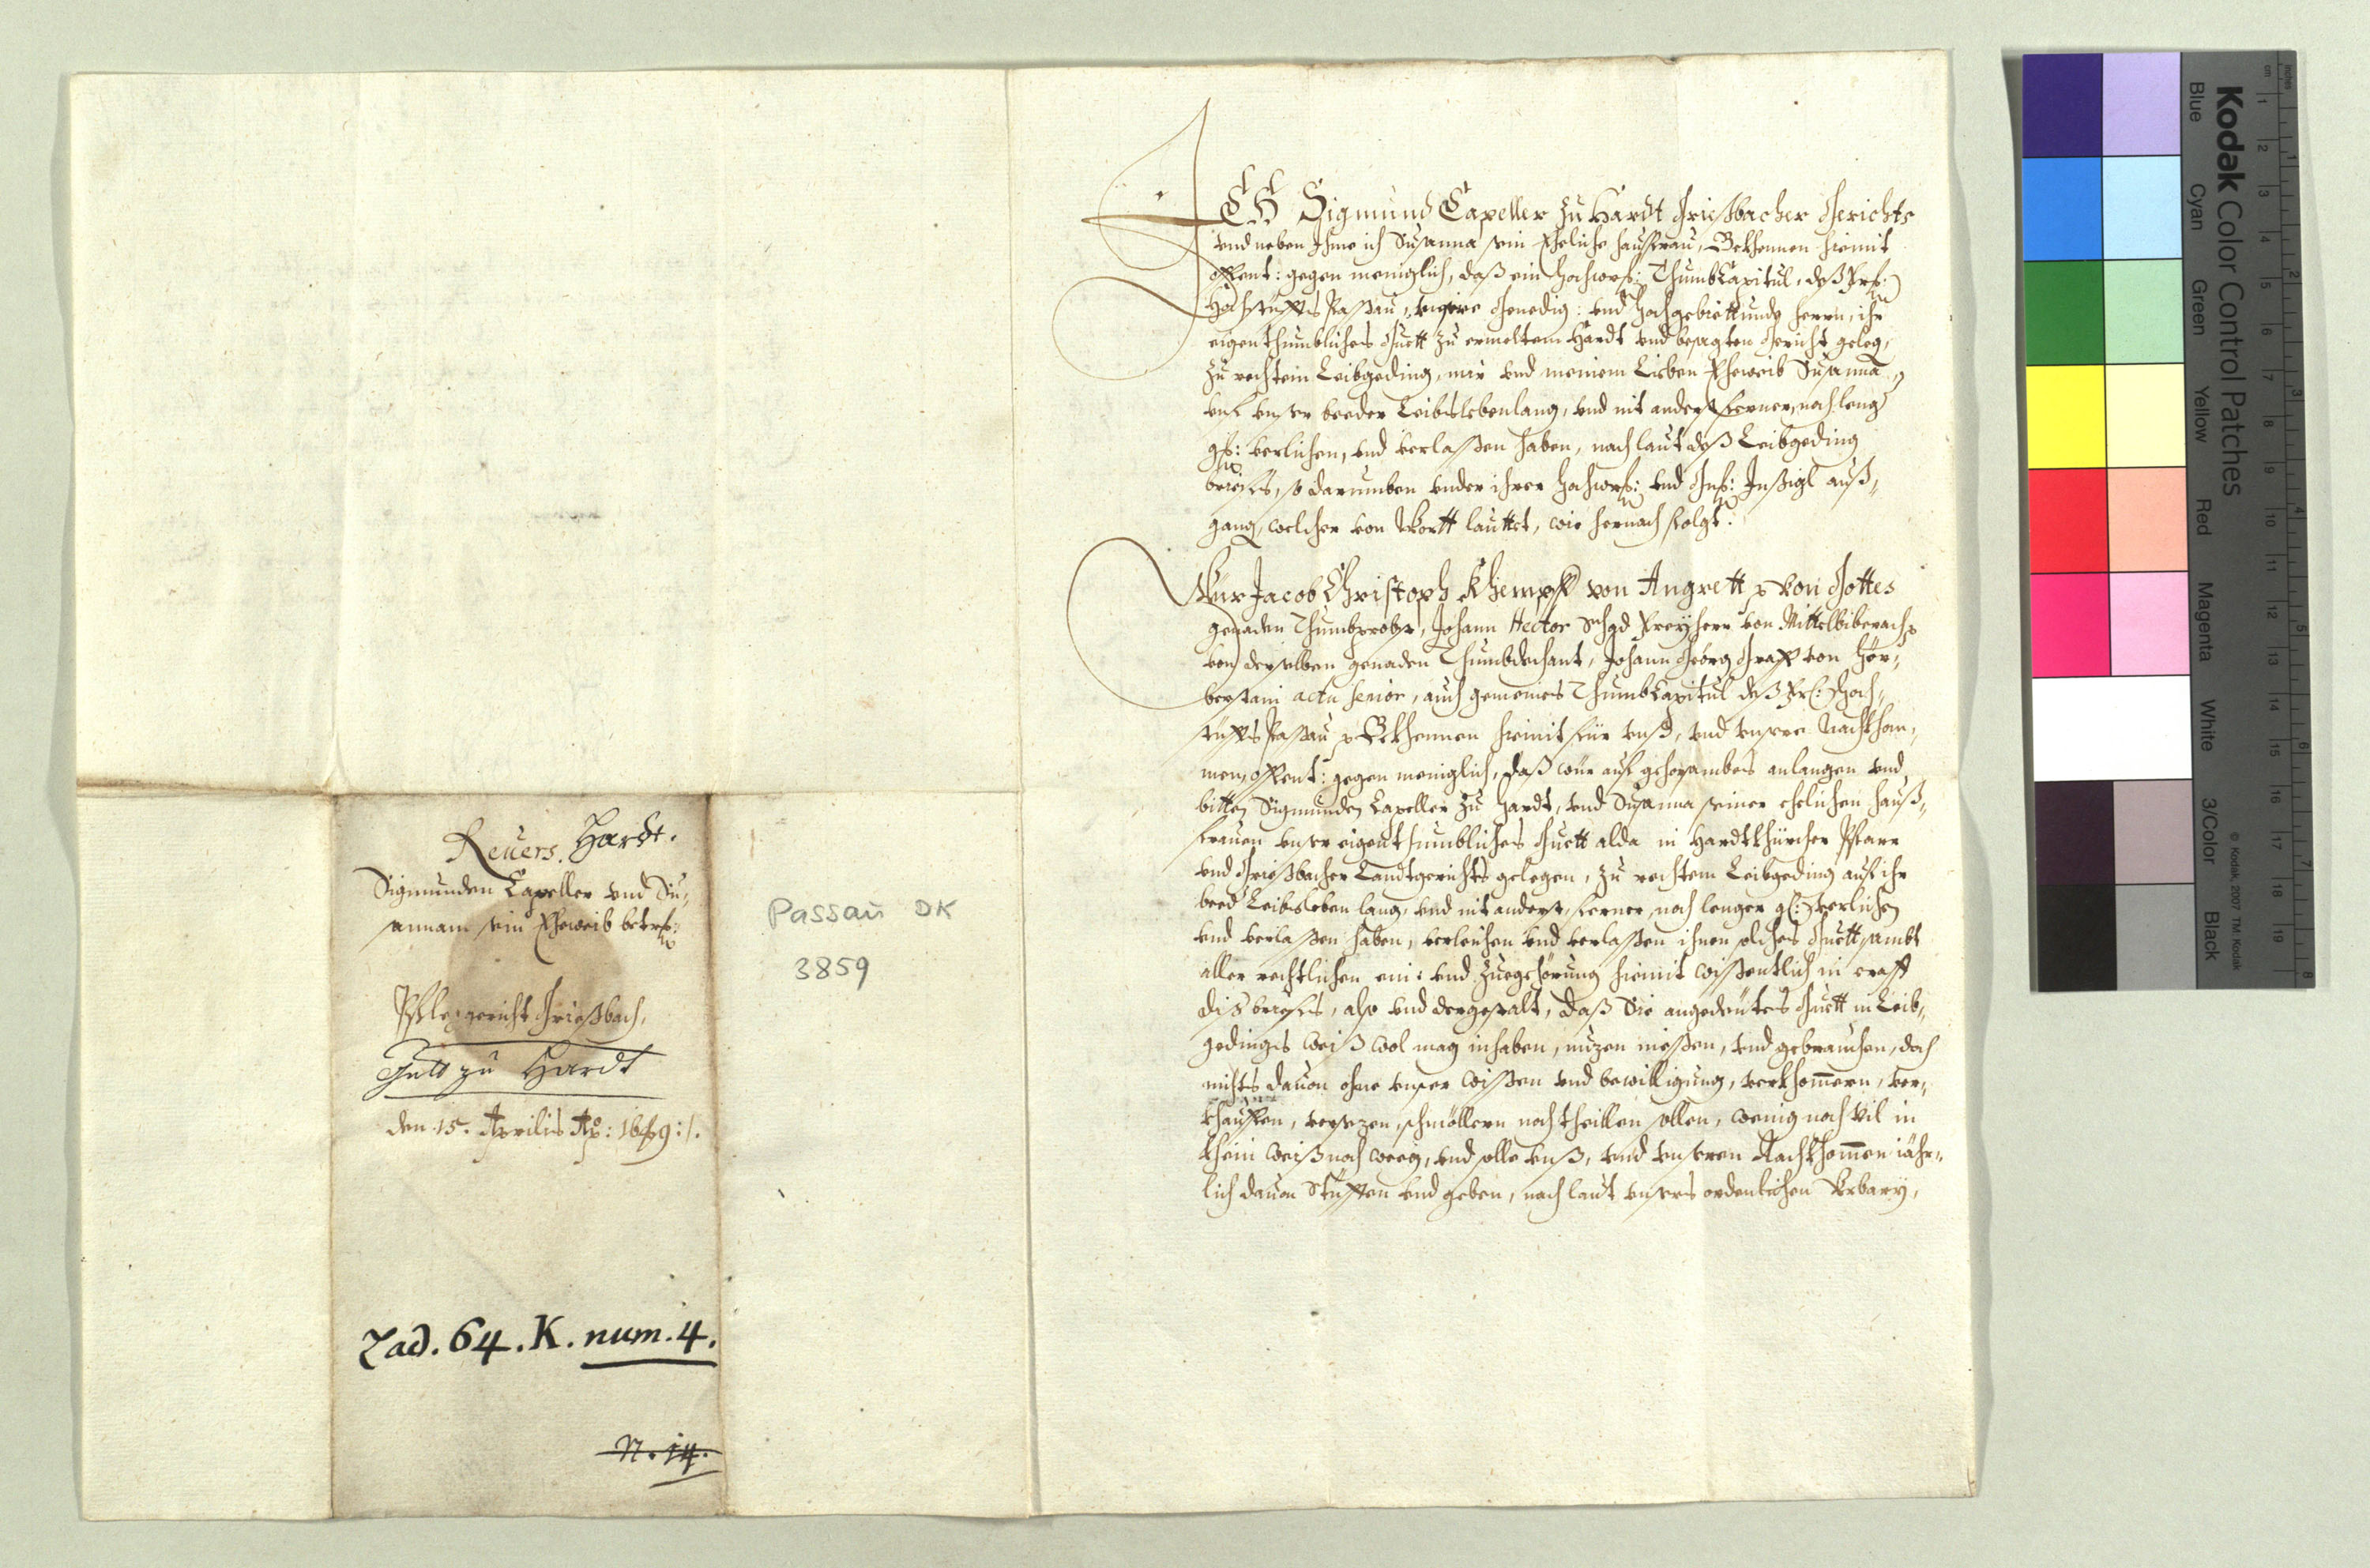 Reuers. Hardt.
Sigmunden Capeller vnd Su-
sannam sein Eheweib betr:
Pfleggericht Griesbach,
Guett zu Hardt
den 15. Aprilis Ao: 1649:/.
Lad. 64. K. num. 4.
N. 14.
Passau DK
3859
ICH Sigmund Capeller zu Hardt Grießbacher Gerichts
vnd neben Ihme ich Susanna sein Eheliche haußfrau, Bekhennen hiemit
offent: gegen meniglich, daß ein Hochwr: ThumbCapitul, deß Er:
Hochstüffts Passau, vnsere Genedig: vnd Hochgebiettunde herrn, ihr
eigenthumbliches Guett zu ermeltem Hardt vnd besagten Gericht geleg,
zu rechtem Leibgeding, mir vnd meinem Lieben Eheweib Susanna
auf vnser beeder Leibslebenlang, vnd nit anderst, ferner, noch leng
gh: verlichen, vnd verlassen haben, nach laut deß Leibgeding
brieffs, so darumben vnder ihrer Hochwr: vnd Gn: Insigl auß-
gang, welcher von Wortt lauttet, wie hernach folgt.
Wür Jacob Christoph Khempff von Angrett von Gottes
genaden Thumbprobst, Johann Hector Schad Freyherr von Mittelbiberach
von deroselben genaden Thumbdechant, Johann Georg Graff von Her-
berstain actu Senior, auch gemeines ThumbCapitul deß Er: Hoch-
stüffts Passau Bekhennen hiemit für vnß, vnd vnsere Nachkhom-
men, offent: gegen meniglich, daß wür auf gehorsambes anlangen vnd
bitten Sigmunden Capeller zu Hardt, vnd Susanna seiner ehelichen hauß-
frauen vnser eigenthumbliches Guett alda in Hardtkhürcher Pfarr
vnd Grießbacher Landtgerichts gelegen, zu rechtem Leibgeding auf ihr
beed Leibsleben lang, vnd nit anderst, ferner, noch lenger g: verlichen
vnd verlassen haben, verleichen vnd verlassen ihnen solches Guett sambt
aller rechtlichen ein: vnd zuegehörung hiemit wissentlich in crafft
dis brieffs, also vnd dergestalt, daß Sie angedeutes Guett in Leib-
gedings weiß wol mag inhaben, nuzen niessen, vnd gebrauchen, doch
nichts dauon ohne vnser wissen vnd bewilligung, verkhommern, ver-
khauffen, versezen, schmöllern noch theillen sollen, wenig noch vil in
khein weiß noch weeg, vnd solle vnß, vnd vnseren Nachkhommen iähr-
lich dauon Stüfften vnd geben, nach laut vnsers ordenlichen Vrbary,
Kodak Color Control Patches
© Kodak, 2007 TM: Kodak
Blue Cyan Green Yellow Red Magenta White 3/Color Black
inches 1 2 3 4 5 6 7 8
cm 1 2 3 4 5 6 7 8 9 10 11 12 13 14 15 16 17 18 19